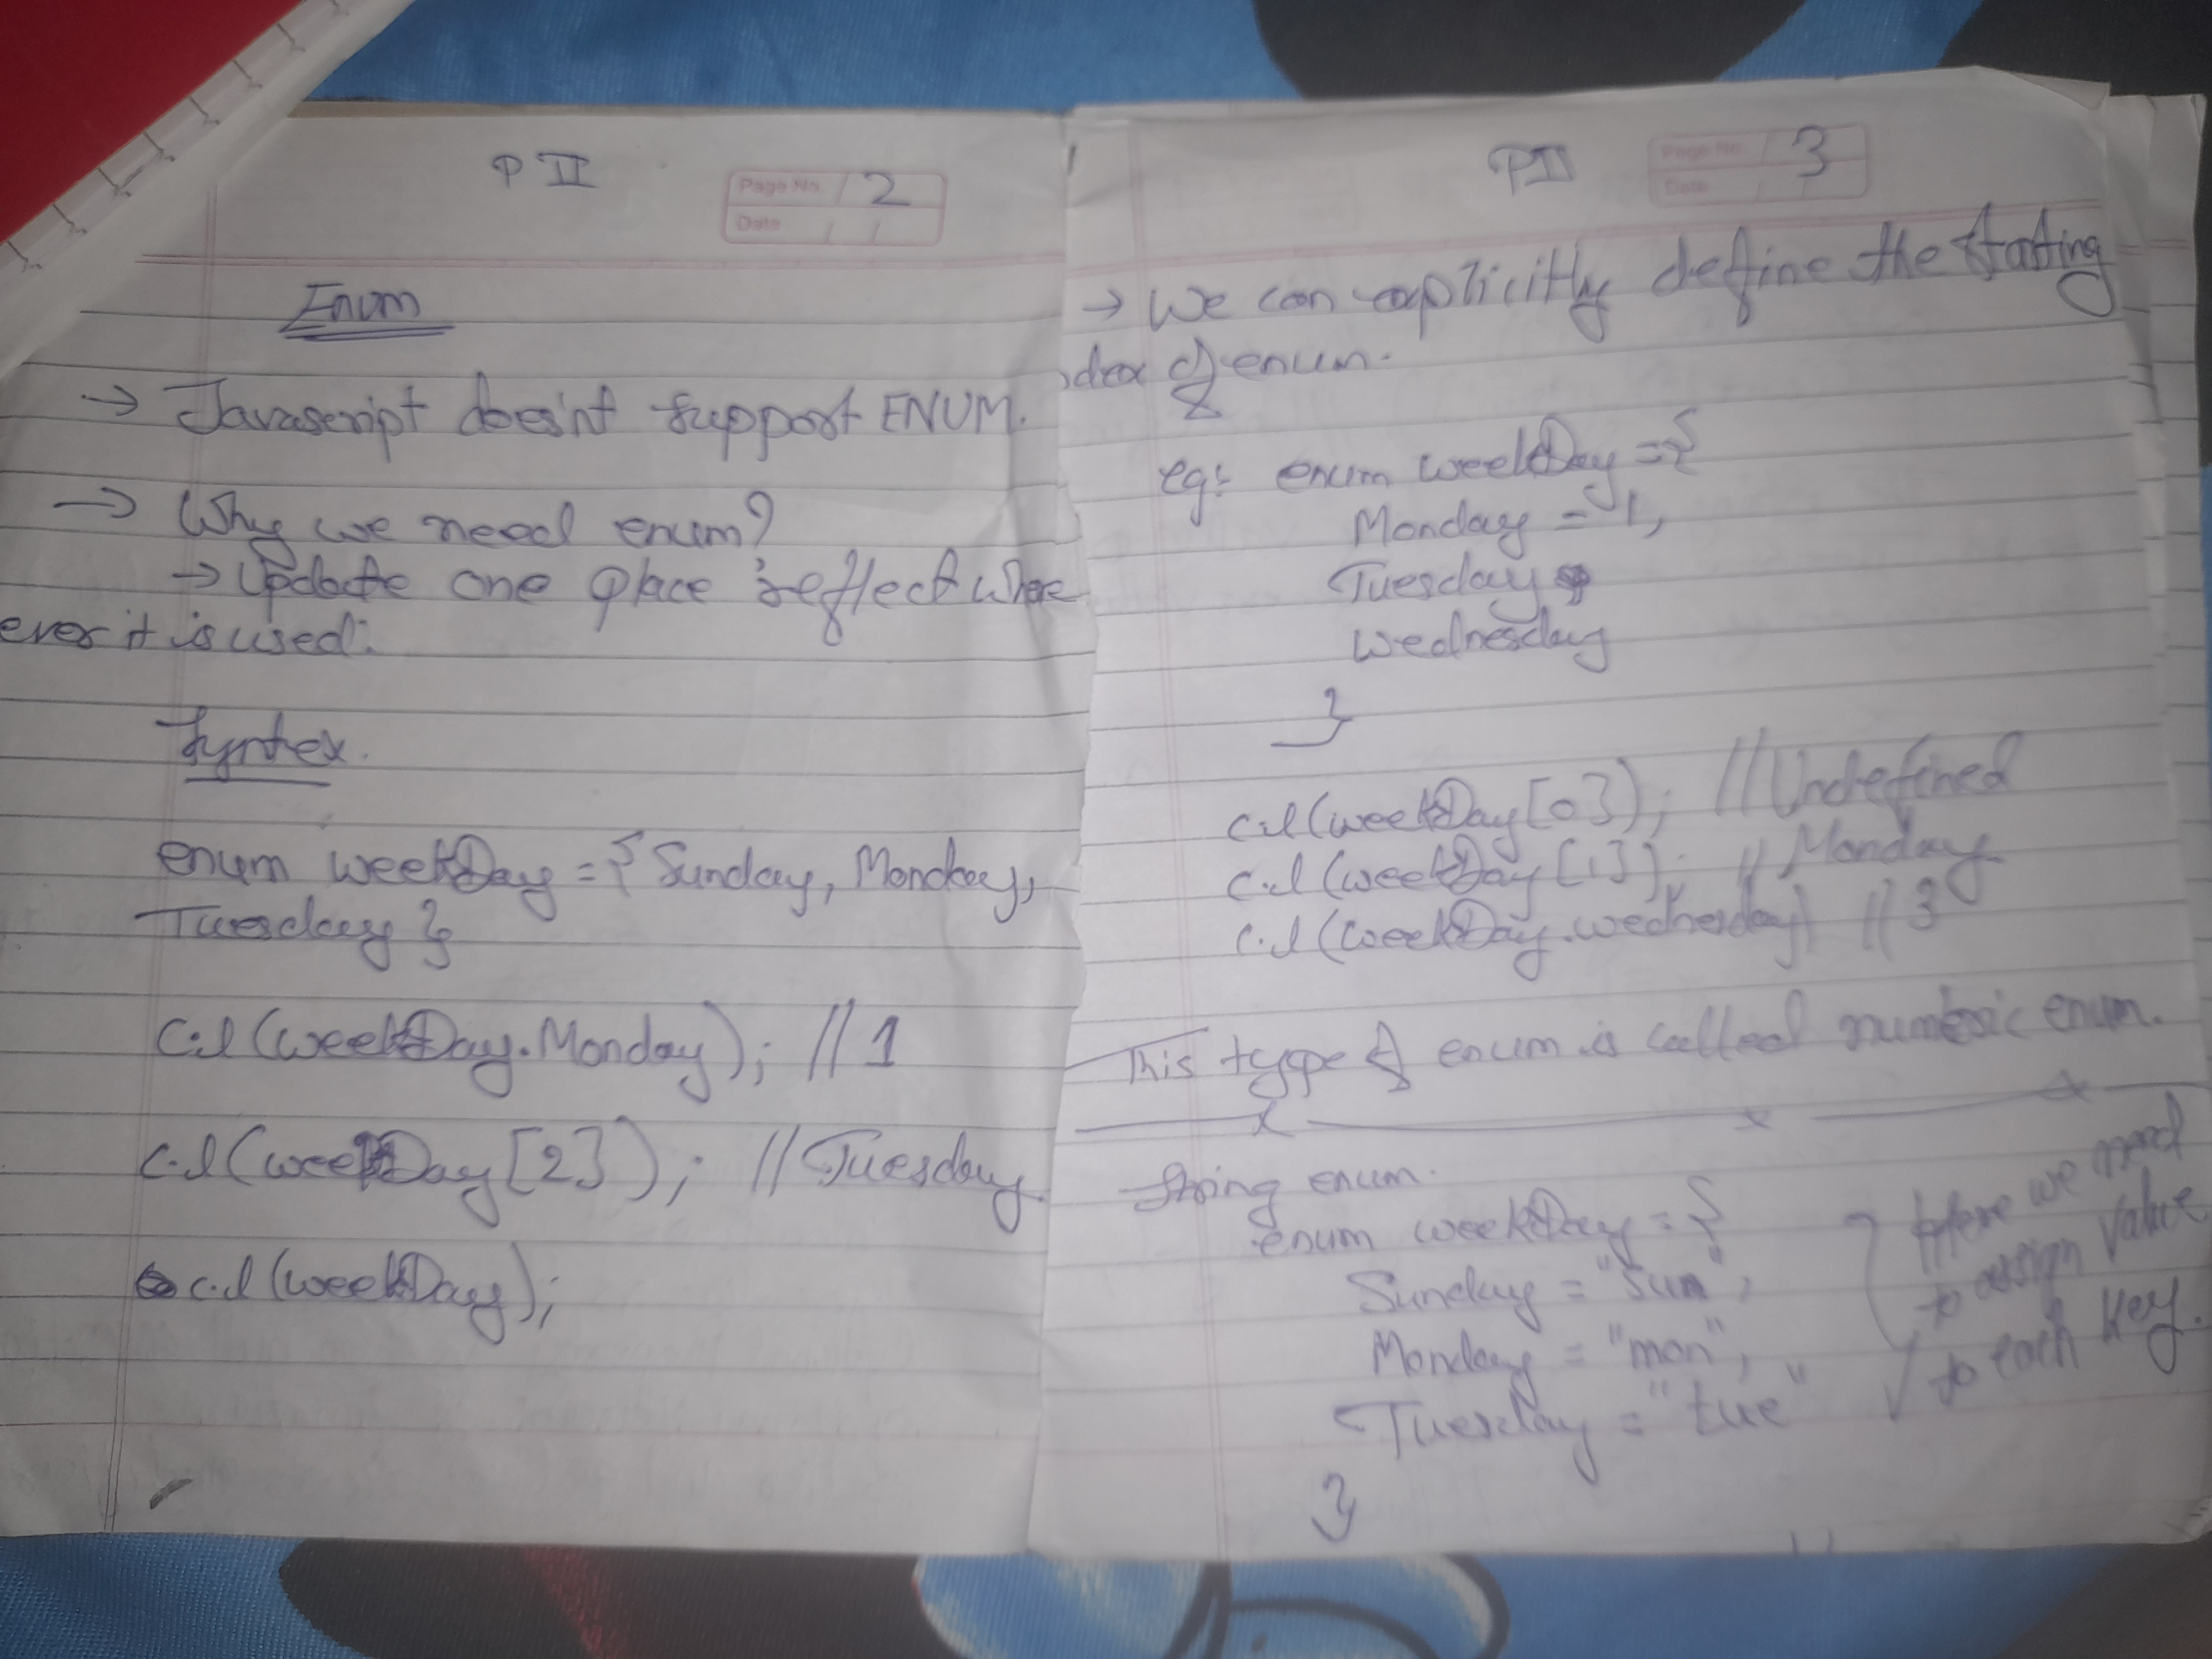 P II
Page No. 2
Date / /
Enum
→ Javascript doesn't support ENUM.
→ Why we need enum?
→ Update one place reflect where
ever it is used.
Syntex.
enum weekDay = { Sunday, Monday,
Tuesday }
c.l(weekDay.Monday); //1
c.l(weekDay[2]); //Tuesday.
c.l(weekDay);
P II
Page No. 3
Date / /
→ We can explicitly define the starting
dex of enum.
eg: enum weekDay = {
Monday = 1,
Tuesday,
Wednesday
}
c.l(weekDay[0]); //Undefined
c.l(weekDay[1]); //Monday
c.l(weekDay.wednesday) //3
This type of enum is called numeric enum.
String enum.
enum weekDay = {
Sunday = "sun",
Monday = "mon",
Tuesday = "tue"
}
Here we need
to assign value
to each key.